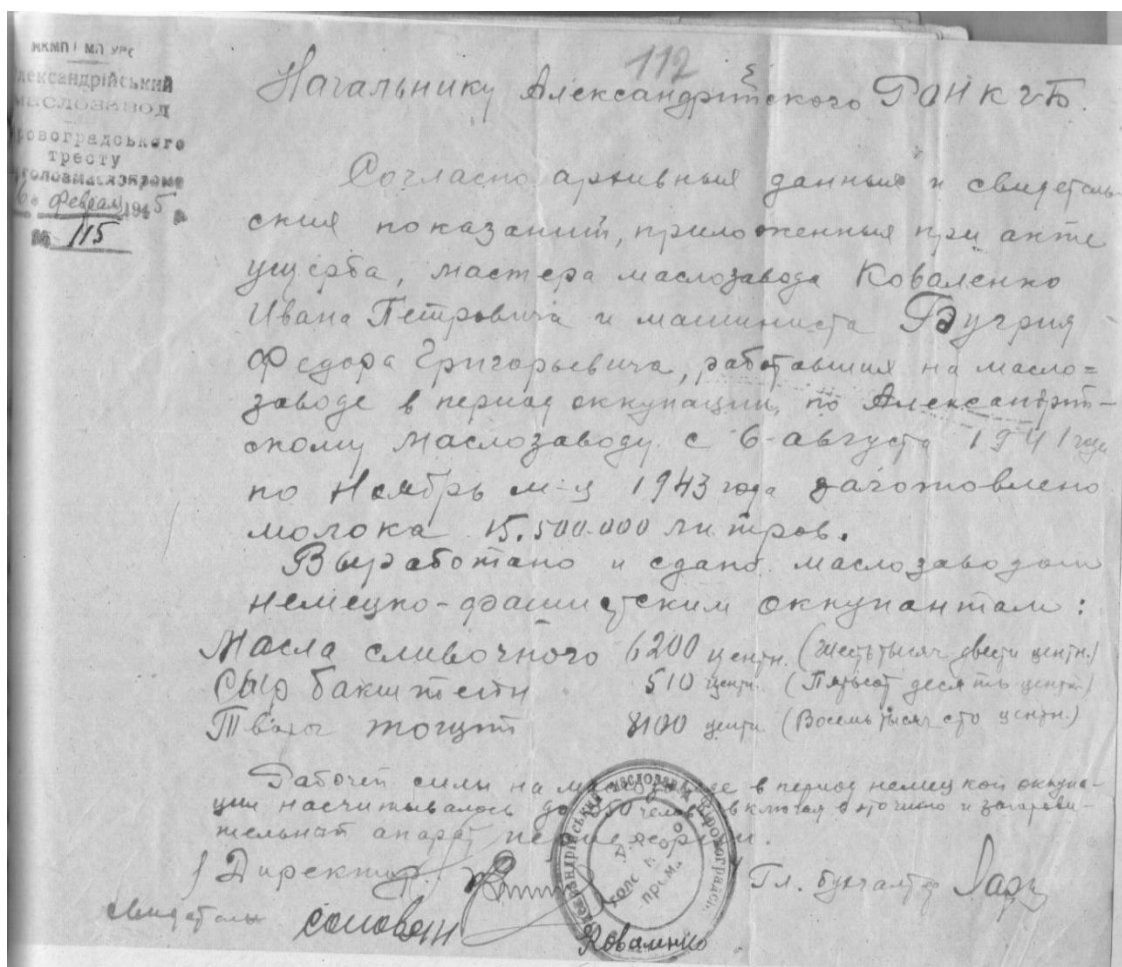 НКМП МП УРС
лександрійський
маслозавод
ровоградського
тресту
6 Февраля 1945
№ 115
112
Начальнику Александрійского РОНКГБ.
Согласно архивных данных и свидетель-
ских показаний, приложенных при акте
ущерба, мастера маслозавода Коваленко
Ивана Петровича и машиниста
Федора Григорьевича, работавших на масло=
заводе в период оккупации, по Александрій-
скому маслозаводу с 6-августа 1941 года
по Ноябрь м-ц 1943 года заготовлено
молока 15.500.000 литров.
Выработано и сдано маслозаводом
немецко-фашистским оккупантам:
Масла сливочного 6200 центн. (Шесть тысяч двести центн.)
Сыр бакштейн 510 центн. (Пятьсот десять центн.)
Творог тощий 8100 центн. (Восемь тысяч сто центн.)
Рабочей силы на маслозаводе в период немецкой оккупа-
ции насчитывалось до человек включая и заготови-
тельный апарат
Директор Гл. бухгалтер
свидетели Соловей Коваленко